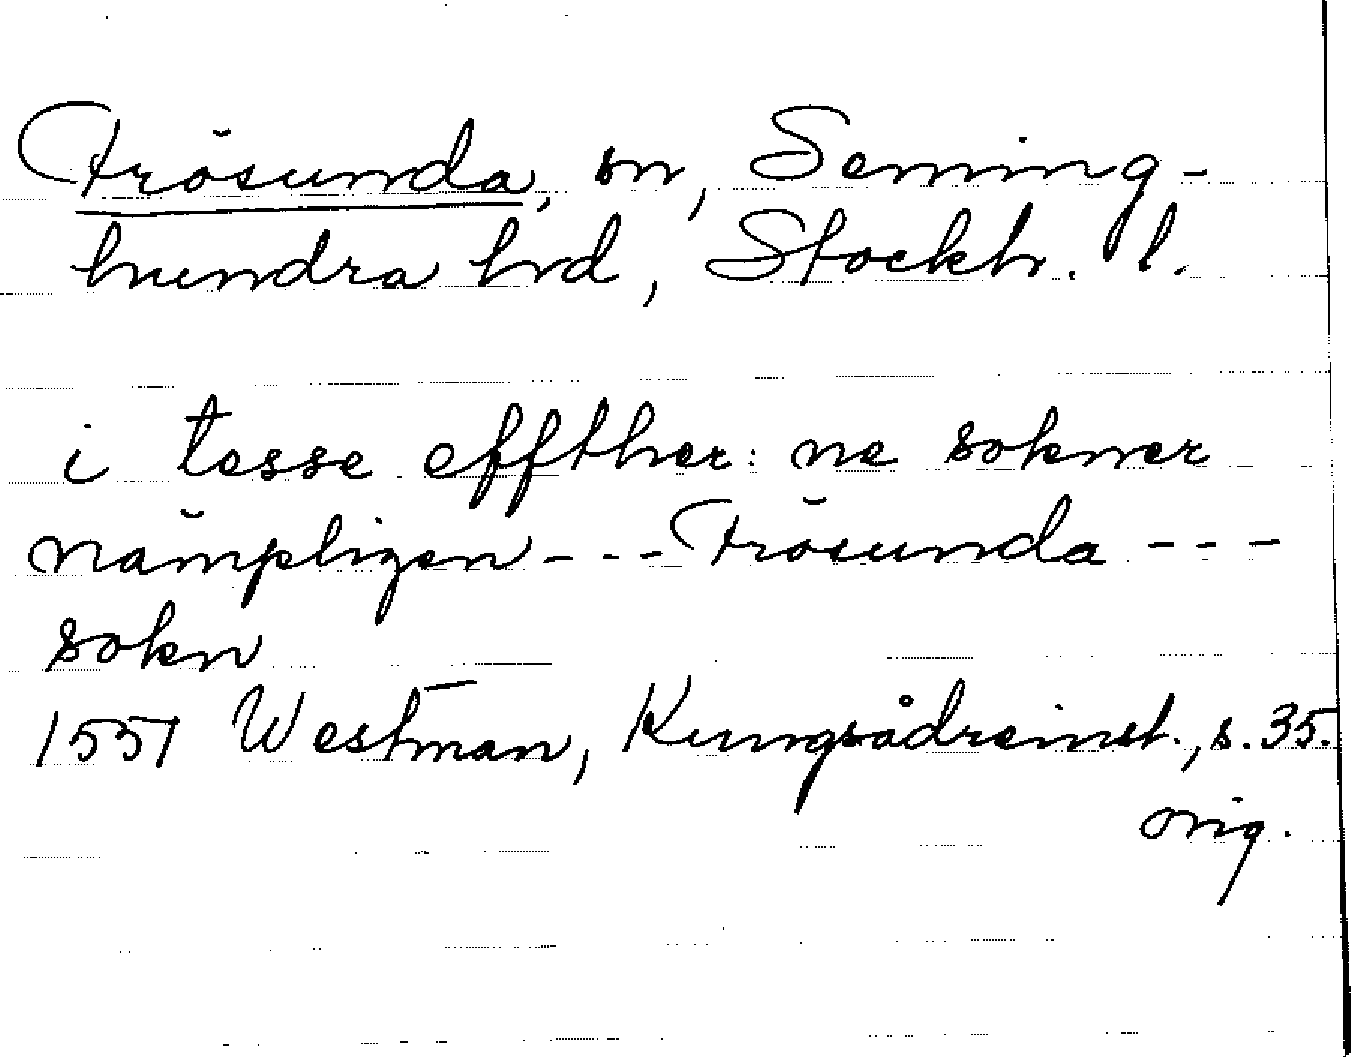 Frösunda, sn, Seming-
hundra hrd, Stockh. l.
i tesse effther: ne sokner
nämpligen --- Frösunda ---
sokn
1551 Westman, Kungsådreinst., s. 35.
orig.